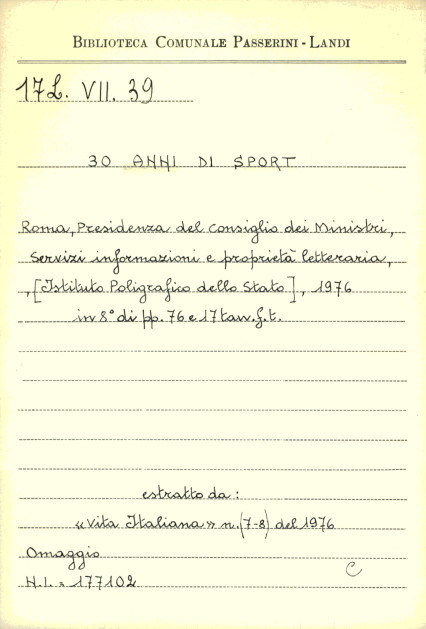 BIBLIOTECA COMUNALE PASSERINI - LANDI
17L. VII. 39
30 ANNI DI SPORT
Roma, Presidenza del Consiglio dei Ministri,
Servizi informazioni e proprietà letteraria,
, [Istituto Poligrafico dello Stato], 1976
in 8° di pp. 76 e 17 tav. f. t.
estratto da :
« Vita Italiana » n. (7-8) del 1976
Omaggio
N. I. = 177102
C